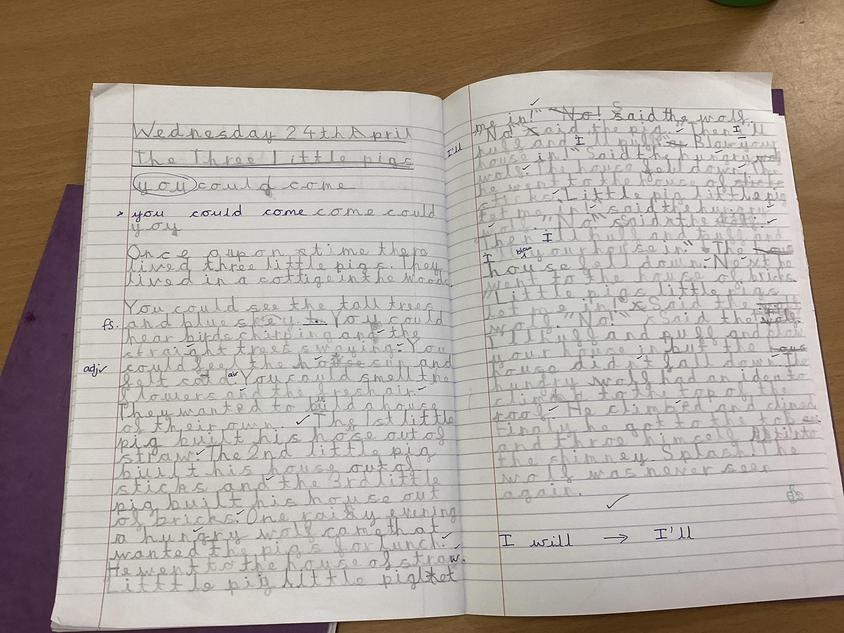 Wednesday 24th April
The Three Little pigs
you could come
you could come come could
you
Once a upon a time there
lived three little pigs. They
lived in a cottige in the woods.
You could see the tall trees
fs. and blue skey. You could
hear birds chirping and the
straight trees swaying. You
adjv could feel the hot sun and
felt cold air. You could smell the
flowers and the fresh air.
They wanted to build a house
of their own. The 1st little
pig built his hose out of
straw. The 2nd little pig
built his house out of
sticks and the 3rd little
pig built his house out
of bricks. One rainy evening
a hungry wolf came that
wanted the pigs for lunch.
He went to the house of straw.
Little pig little pig let
me in!" No! said the wolf.
I'll "No! said the pig. Then I'll
huff and I'll puff Blow your
house in!" Said the hungry
wolf. The house fell down. The
he went to the house of sticks
sticks. Little pig little pig
let me in!" said the hungry
"No!" said the
Then I'll huff and puff and
I blow your house in". The
house fell down. Next he
went to the house of bricks.
Little pigs little pigs
let me in!" Said the
wolf. "No!" Said the
I'll huff and puff and
your house in but the
house didn't fall down. The
hungry wolf had an iden to
climb to the top of the
roof. He climbed and climed
finaly he got to the top
and throe himself into
the chimney. Splash! The
wolf was never seen
again.
I will → I'll